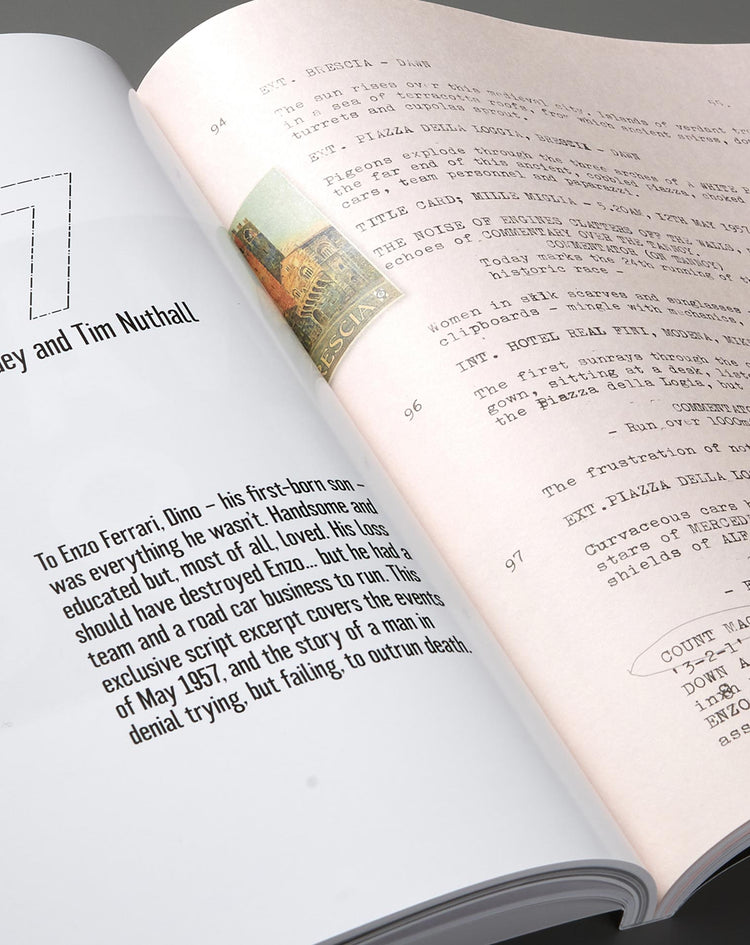 7
ey and Tim Nuthall
To Enzo Ferrari, Dino – his first-born son –
was everything he wasn't. Handsome and
educated but, most of all, loved. His loss
should have destroyed Enzo... but he had a
team and a road car business to run. This
exclusive script excerpt covers the events
of May 1957, and the story of a man in
denial trying, but failing, to outrun death.
EXT. BRESCIA - DAWN
94
The sun rises over this medieval city. Islands of verdant
in a sea of terracotta roofs, from which ancient spires,
turrets and cupolas sprout.
EXT. PIAZZA DELLA LOGGIA, BRESCIA - DAWN
Pigeons explode through the three arches of a WHITE
the far end of this ancient, cobbled piazza, choked
cars, team personnel and paparazzi.
TITLE CARD; MILLE MIGLIA - 5.20AM, 12TH MAY 1957
THE NOISE OF ENGINES CLATTERS OFF THE WALLS,
echoes of COMMENTARY OVER THE TANNOY.
COMMENTATOR (ON TANNOY)
Today marks the 24th running of
historic race -
Women in silk scarves and sunglasses
clipboards - mingle with mechanics,
INT. HOTEL REAL FINI, MODENA,
96
The first sunrays through the
gown, sitting at a desk,
the Piazza della Logia, but
COMMENTATO
- Run over 1000m
The frustration of not
EXT.PIAZZA DELLA LO
97
Curvaceous cars
stars of MERCED
shields of ALF
COUNT MAG
'3-2-1'
DOWN A
in
ENZO
ass
RESCIA